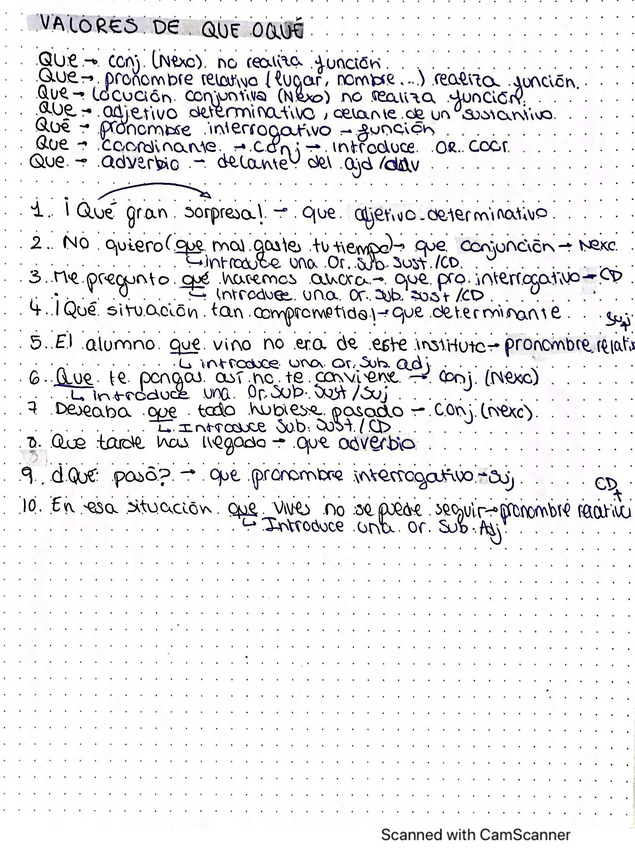 VALORES DE QUE O QUÉ
Que → conj. (Nexo) no realiza función.
Que → pronombre relativo (lugar, nombre...) realiza función.
Que → locución conjuntiva (Nexo) no realiza función.
Que → adjetivo determinativo, delante de un sustantivo.
Qué → pronombre interrogativo - función
Que → coordinante → conj → introduce OR. COOR.
Que → adverbio - delante del ajd/adv
1. ¡Qué gran sorpresa! → que adjetivo determinativo.
2. No quiero (que mal gastes tu tiempo) → que conjunción → Nexo.
↳ introduce una Or. Sub. Sust./CD.
3. Me pregunto qué haremos ahora → que pro. interrogativo → CD
↳ Introduce una Or. Sub. Sust/CD
4. ¡Qué situación tan comprometida! → que determinante.
Suj
5. El alumno que vino no era de este instituto → pronombre relativ
↳ introduce una Or. Sub. adj
6. Que te pongas así no te conviene → conj. (Nexo)
↳ introduce una Or. Sub. Sust/Suj
7 Deseaba que todo hubiese pasado - conj. (nexo).
↳ Introduce Sub. Sust./CD
8. Que tarde has llegado → que adverbio
9. ¿Qué pasó? → que pronombre interrogativo - Suj
CD
10. En esa situación que vives no se puede seguir → pronombre relativo
↳ Introduce una Or. Sub. Adj
Scanned with CamScanner